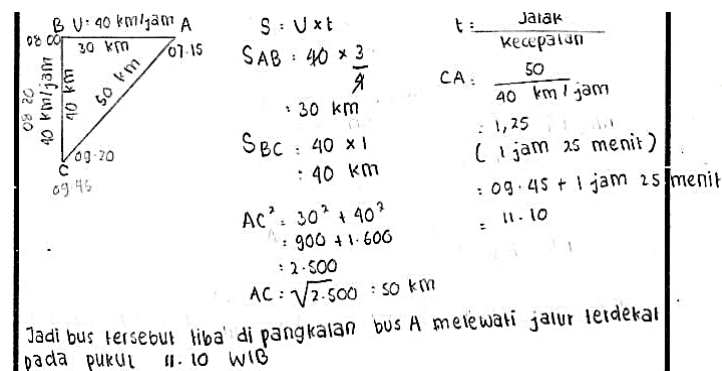 B V = 40 km/jam A
08.00 30 km 07.15
08.20 40 km/jam 40 km 50 km
C 09.20
09.45
S = V x t
S AB = 40 x 3/4
= 30 km
S BC = 40 x 1
= 40 km
AC² = 30² + 40²
= 900 + 1.600
= 2.500
AC = √2.500 = 50 km
t = Jarak / Kecepatan
CA = 50 / 40 km / jam
= 1,25
( 1 jam 25 menit )
= 09.45 + 1 jam 25 menit
= 11.10
Jadi bus tersebut tiba di pangkalan bus A melewati jalur terdekat
pada pukul 11.10 WIB